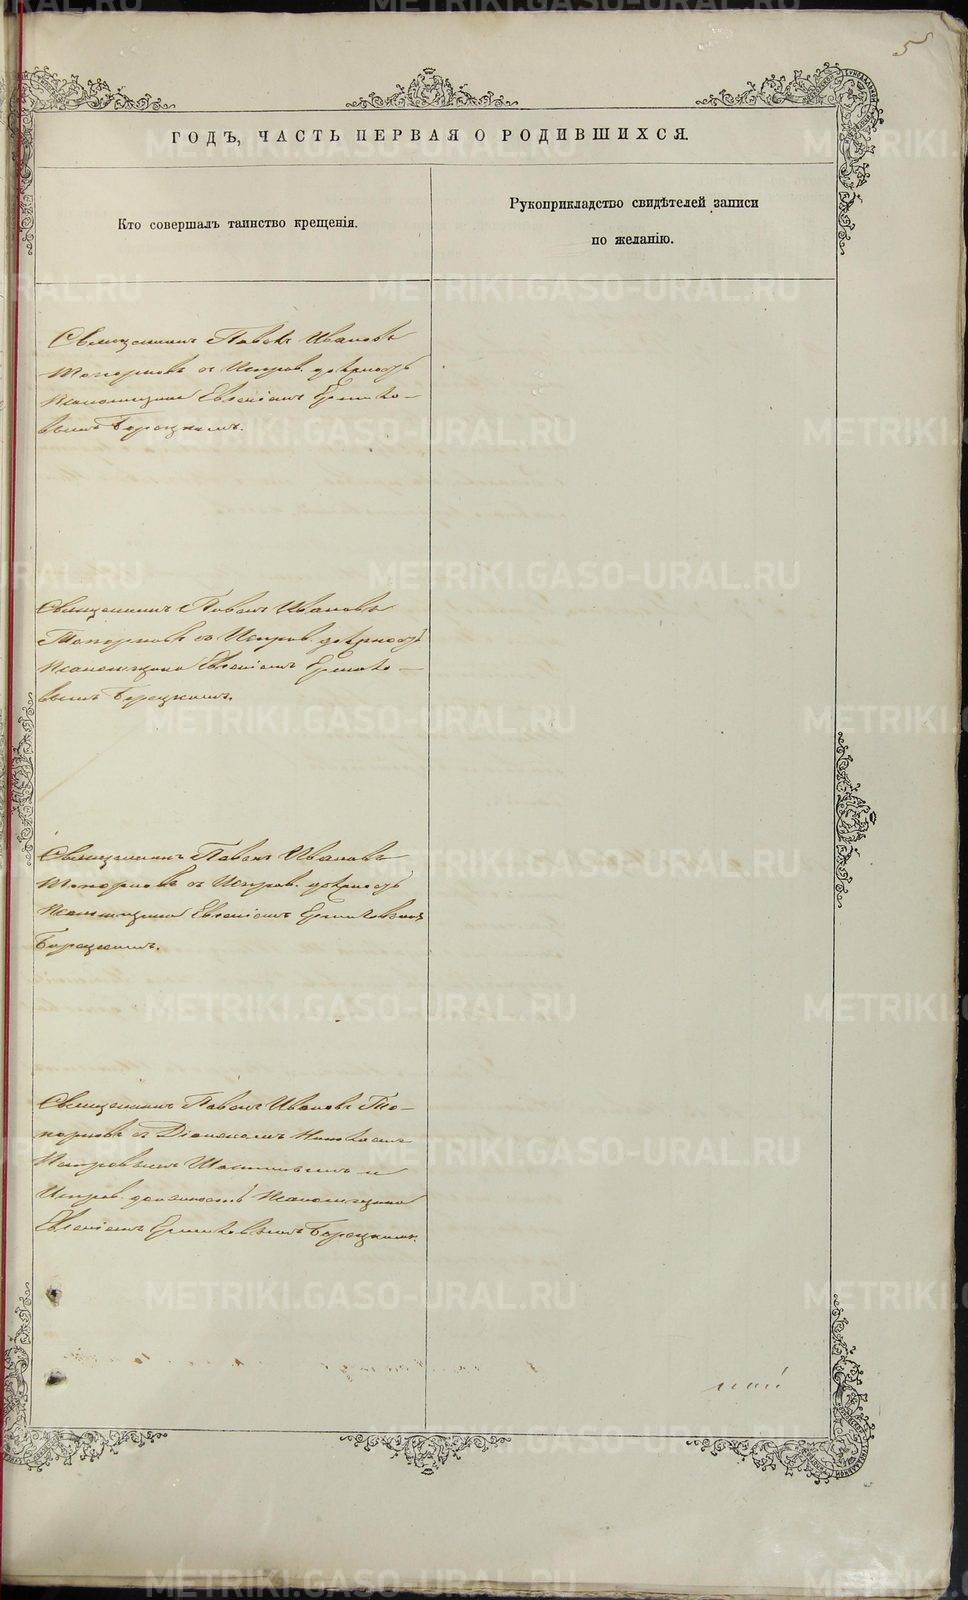 5
ГОДЪ, ЧАСТЬ ПЕРВАЯ О РОДИВШИХСЯ.
Кто совершалъ таинство крещенія.
Рукоприкладство свидѣтелей записи
по желанію.
Священникъ Павелъ Ивановъ
Топорковъ съ Исправ. должность
Псаломщика Евгеніемъ Ермило-
вымъ Борецкимъ.
Священникъ Павелъ Ивановъ
Топорковъ съ Исправ. должность
Псаломщика Евгеніемъ Ермило-
вымъ Борецкимъ.
Священникъ Павелъ Ивановъ
Топорковъ съ Исправ. должность
Псаломщика Евгеніемъ Ермиловымъ
Борецкимъ.
Священникъ Павелъ Ивановъ То-
порковъ съ Діакономъ Николаемъ
Петровымъ и
Исправ. должность Псаломщика
Евгеніемъ Ермиловымъ Борецкимъ.
METRIKI.GASO-URAL.RU